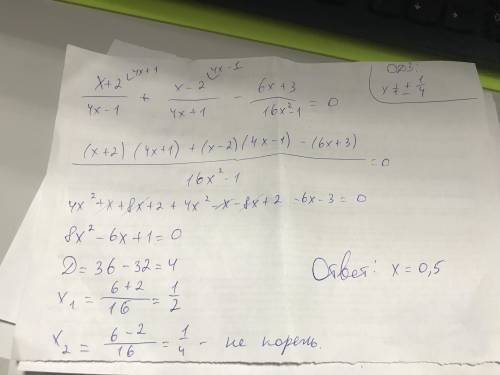 x+2 ⌣4x+1 / 4x-1 + x-2 ⌣4x-1 / 4x+1 - 6x+3 / 16x²-1 = 0
ОДЗ:
x ≠ ± 1/4
(x+2)(4x+1) + (x-2)(4x-1) - (6x+3) / 16x²-1 = 0
4x² + x + 8x + 2 + 4x² - x - 8x + 2 - 6x - 3 = 0
8x² - 6x + 1 = 0
D = 36 - 32 = 4
x₁ = 6+2 / 16 = 1/2
x₂ = 6-2 / 16 = 1/4 - не корень.
Ответ: x = 0,5